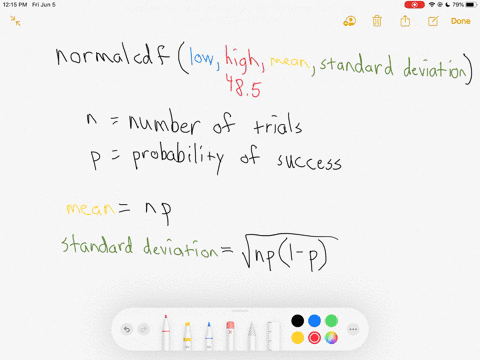 12:15 PM Fri Jun 5
79%
Done
normalcdf (low, high, mean, standard deviation)
48.5
n = number of trials
p = probability of success
mean = np
standard deviation = √np(1-p)